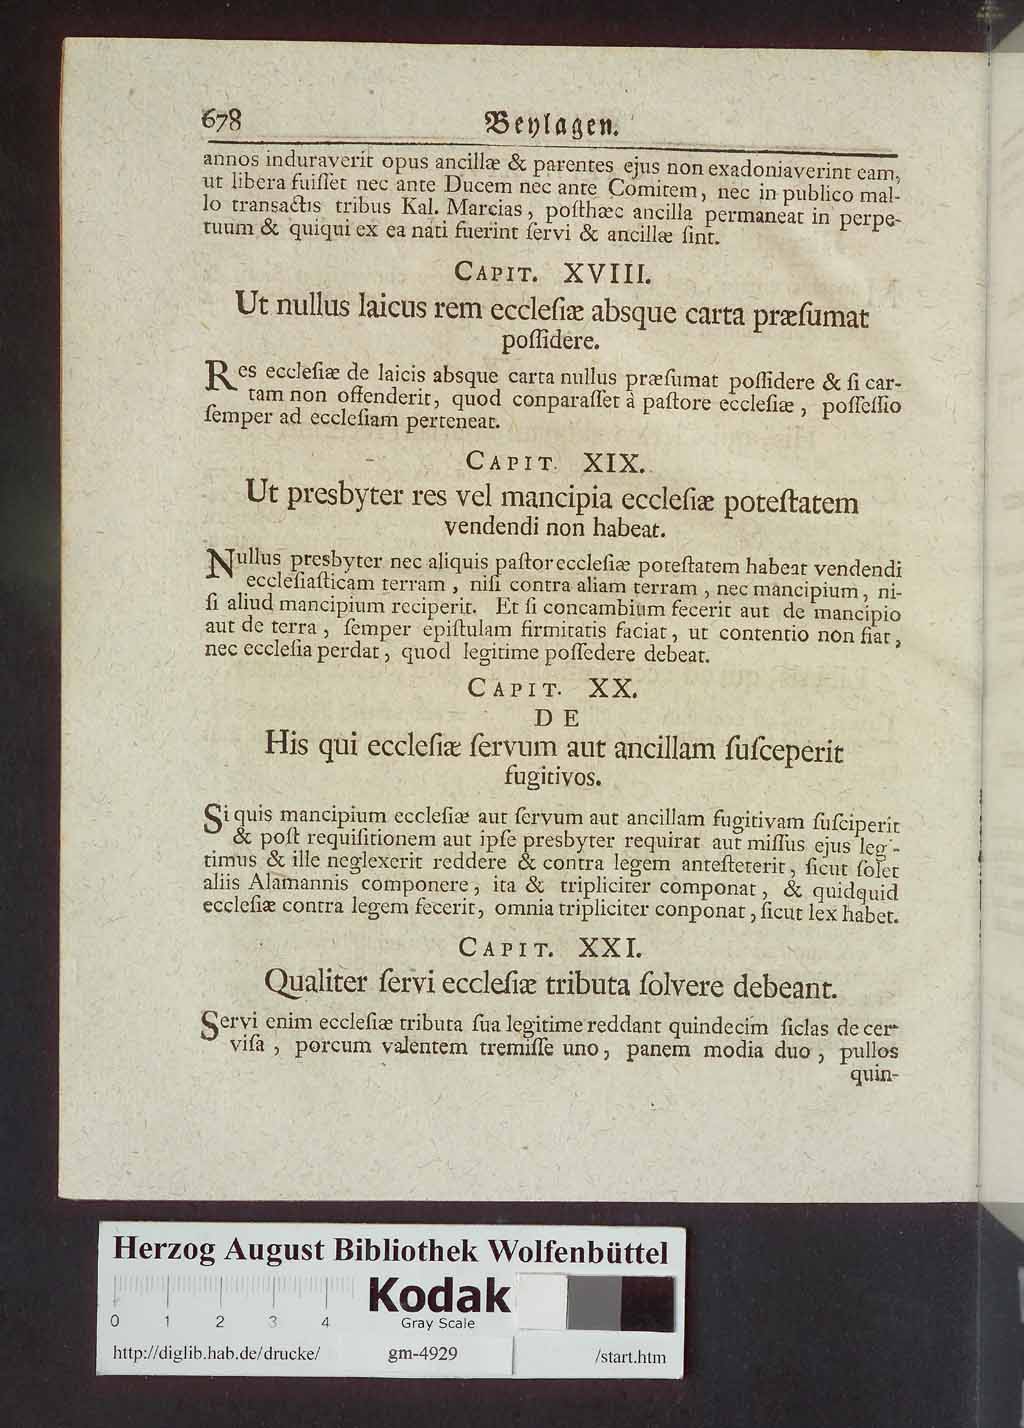 678 Beylagen.
annos induraverit opus ancillæ & parentes ejus non exadoniaverint eam,
ut libera fuiſſet nec ante Ducem nec ante Comitem, nec in publico mal-
lo transactis tribus Kal. Marcias, poſthæc ancilla permaneat in perpe-
tuum & quiqui ex ea nati fuerint ſervi & ancillæ ſint.
CAPIT. XVIII.
Ut nullus laicus rem eccleſiæ absque carta præſumat
poſſidere.
Res eccleſiæ de laicis absque carta nullus præſumat poſſidere & ſi car-
tam non oſſenderit, quod conparaſſet à paſtore eccleſiæ, poſſeſſio
ſemper ad eccleſiam perteneat.
CAPIT. XIX.
Ut presbyter res vel mancipia eccleſiæ poteſtatem
vendendi non habeat.
Nullus presbyter nec aliquis paſtor eccleſiæ poteſtatem habeat vendendi
eccleſiaſticam terram, niſi contra aliam terram, nec mancipium, ni-
ſi aliud mancipium reciperit. Et ſi concambium fecerit aut de mancipio
aut de terra, ſemper epiſtulam firmitatis faciat, ut contentio non fiat,
nec eccleſia perdat, quod legitime poſſedere debeat.
CAPIT. XX.
DE
His qui eccleſiæ ſervum aut ancillam ſuſceperit
fugitivos.
Si quis mancipium eccleſiæ aut ſervum aut ancillam fugitivam ſuſciperit
& poſt requiſitionem aut ipſe presbyter requirat aut miſſus ejus legi-
timus & ille neglexerit reddere & contra legem anteſteterit, ſicut ſolet
aliis Alamannis componere, ita & tripliciter componat, & quidquid
eccleſiæ contra legem fecerit, omnia tripliciter conponat, ſicut lex habet.
CAPIT. XXI.
Qualiter ſervi eccleſiæ tributa ſolvere debeant.
Servi enim eccleſiæ tributa ſua legitime reddant quindecim ſiclas de cer-
viſa, porcum valentem tremiſſe uno, panem modia duo, pullos
quin-
Herzog August Bibliothek Wolfenbüttel
Kodak
0 1 2 3 4 Gray Scale
http://diglib.hab.de/drucke/ gm-4929 /start.htm